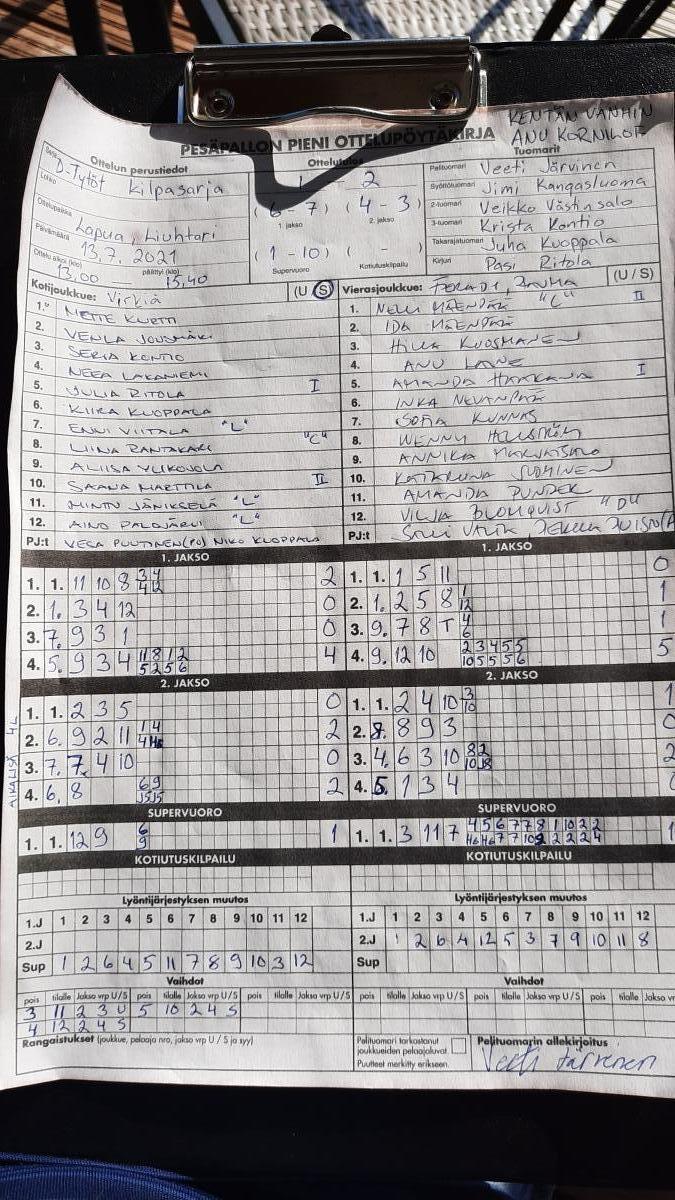 KENTÄN VANHIN
ANU KORNIKOF
PESÄPALLON PIENI OTTELUPÖYTÄKIRJA
Ottelun perustiedot
Ottelutulos
Tuomarit
Sarja D-Tytöt Kilpasarja
1 - 2
Pelituomari Veeti Järvinen
Syöttötuomari Jimi Kangasluoma
(6 - 7) (4 - 3)
1. jakso 2. jakso
2-tuomari Veikko Västinsalo
Ottelupaikka Lapua, Liuhtari
3-tuomari Krista Kontio
Päivämäärä 13.7.2021
(1 - 10) ( - )
Takarajatuomari Juha Kuoppala
Ottelu alkoi (klo) 13.00 päättyi (klo) 15,40
Supervuoro Kotiutuskilpailu
Kirjuri Pasi Ritola
Kotijoukkue: Virkiä (U S)
Vierasjoukkue: (U / S)
1. METTE KURTTI
1. NELLI MÄENPÄÄ "C" II
2. VENLA JOUSMÄKI
2. IDA MÄENPÄÄ
3. SERJA KONTIO
3. HILLA KUOSMANEN
4. NEEA LAKANIEMI
4. ANU LAINE
5. JULIA RITOLA I
5. AMANDA HAKKANA I
6. KIIRA KUOPPALA
6. INKA NEVANPÄÄ
7. ENNI VIITALA "L"
7. SOFIA KUNNAS
8. LIINA RANTAKARI "C"
8. WENNY HELLSTRÖM
9. ALIISA YLIKOJOLA
9. ANNIKA
10. SAANA MARTTILA II
10. KATARIINA SUOMINEN
11. MINTU JÄNIKSELÄ "L"
11. AMANDA PUNDER
12. AINO PALOJÄRVI "L"
12. VILJA BLOMQUIST "D"
PJ:t VESA PUUTINEN(PO) NIKO KUOPPALA
PJ:t
1. JAKSO
1. JAKSO
1. 1. 11 10 8 3 4 4 12 2
1. 1. 1 5 11 0
2. 1. 3 4 12 0
2. 1. 2 5 8 1 12 1
3. 7. 9 3 1 0
3. 9. 7 8 T 4 6 1
4. 5. 9 3 4 11 8 1 2 5 2 5 6 4
4. 9. 12 10 2 3 4 5 5 10 5 5 5 6 5
2. JAKSO
2. JAKSO
1. 1. 2 3 5 0
1. 1. 2 4 10 3 10 1
2. 6. 9 2 11 2
2. 8. 8 9 3 0
3. 7. 7. 4 10 0
3. 4. 6 3 10 2
4. 6. 8 2
4. 5. 1 3 4
AIKALISÄ 4L
SUPERVUORO
SUPERVUORO
1. 1. 12 9 6 9 1
1. 1. 3 11 7 4 5 6 7 7 8 1 10 2 2
KOTIUTUSKILPAILU
KOTIUTUSKILPAILU
Lyöntijärjestyksen muutos
Lyöntijärjestyksen muutos
1.J 1 2 3 4 5 6 7 8 9 10 11 12
1.J 1 2 3 4 5 6 7 8 9 10 11 12
2.J
2.J 1 2 6 4 12 5 3 7 9 10 11 8
Sup 1 2 6 4 5 11 7 8 9 10 3 12
Sup
Vaihdot
Vaihdot
pois tilalle Jakso vrp U/S pois tilalle Jakso vrp U/S pois tilalle Jakso vrp U/S
pois tilalle Jakso vrp U/S pois tilalle Jakso vrp U/S pois tilalle Jakso vr
3 11 2 3 U 5 10 2 4 S
4 12 2 4 S
Rangaistukset (joukkue, pelaaja nro, jakso vrp U / S ja syy)
Pelituomari tarkastanut joukkueiden pelaajaluvat.
Puutteet merkitty erikseen.
Pelituomarin allekirjoitus
Veeti Järvinen